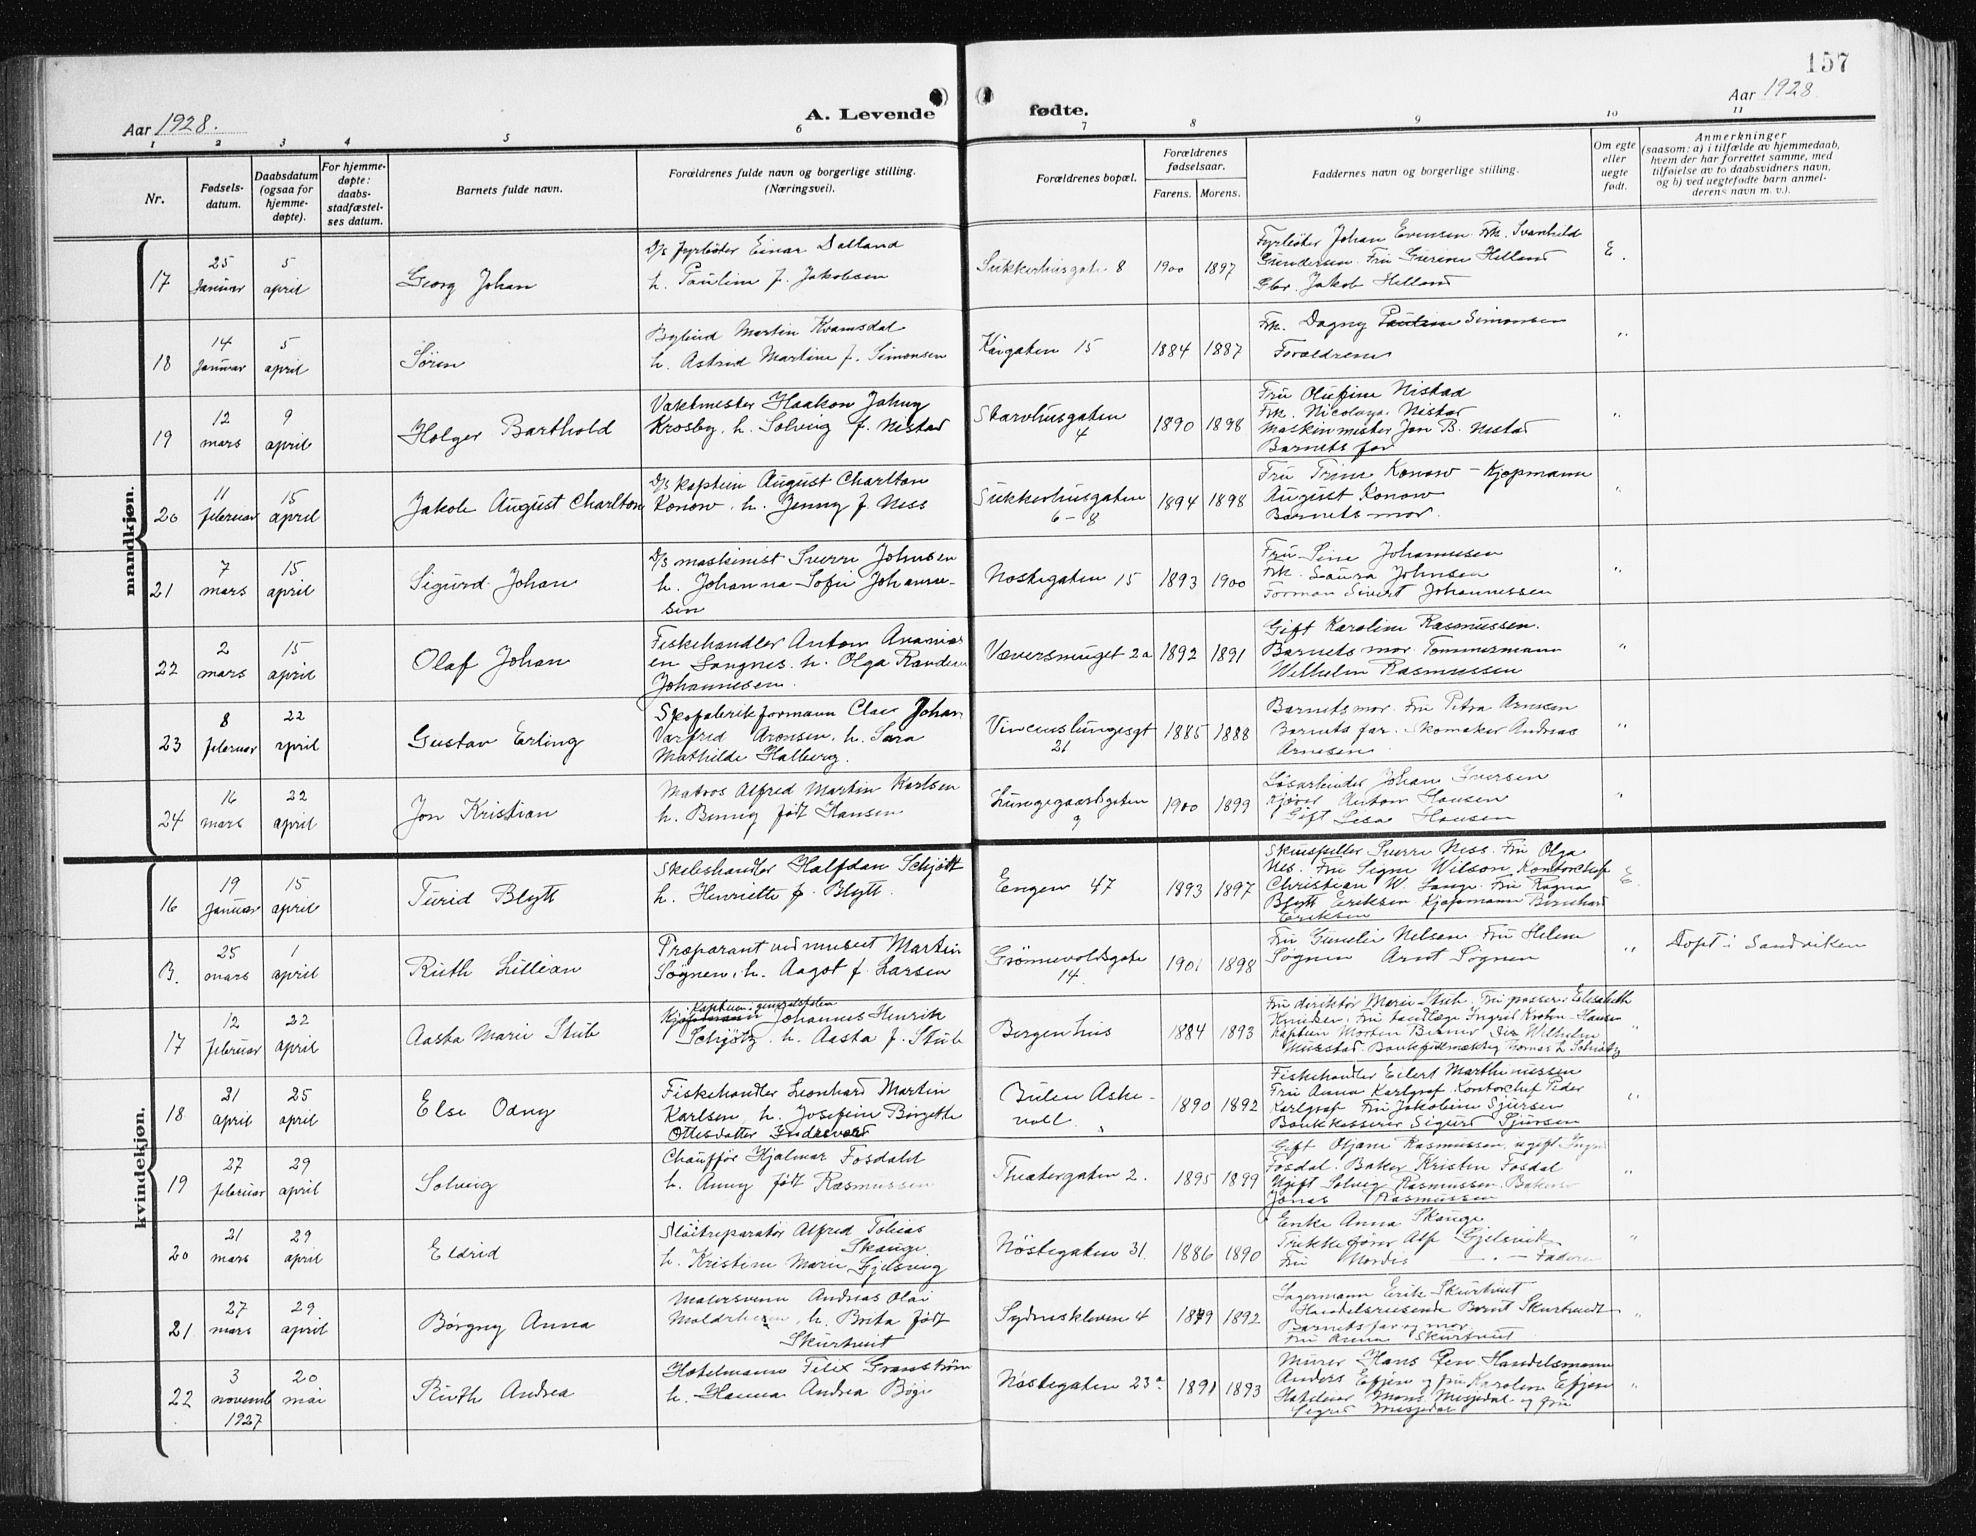 157
Aar 1928.
A. Levende fødte.
Aar 1928
1 2 3 4 5 6 7 8 9 10 11
Nr.
Fødsels-
datum.
Daabsdatum
(ogsaa for
hjemme-
døpte).
For hjemme-
døpte:
daabs
stadfæstel-
ses datum.
Barnets fulde navn.
Forældrenes fulde navn og borgerlige stilling.
(Næringsvei).
Forældrenes bopæl.
Forældrenes
fødselsaar.
Farens. Morens.
Faddernes navn og borgerlige stilling.
Om egte
eller
uegte
født.
Anmerkninger
(saasom: a) i tilfælde av hjemmedaab,
hvem der har forrettet samme, med
tilføielse av to daabsvidners navn,
og b) ved uegtefødte barn anmel-
derens navn m. v.).
mandkjøn.
17
25
Januar
5
april
Georg Johan
D/s fyrbøter Einar Dalland
h. Pauline f. Jakobsen
Sukkerhusgate 8
1900 1897
Fyrbøter Johan Evensen. Frk. Svanhild
Gundersen. Fru Helland
Jakob Helland
E.
18
14
Januar
5
april
Søren
Martin Kvamsdal
h. Astrid Martine f. Simonsen
Kaigaten 15
1884 1887
Frk. Dagny Pauline Simonsen
Forældrene
"
19
12
mars
9
april
Holger Barthold
Vaktmester Haakon Johny
Krosby. h. Solveig f. Nistad
Skarvhusgaten
4
1890 1898
Fru Olufine Nistad
Frk. Nicolaya Nistad
Maskinmester Jon B. Nistad
Barnets far
"
20
11
februar
15
april
Jakob August Charlton
D/s kaptein August Charlton
Konow. h. Jenny f. Ness
Sukkerhusgaten
6-8
1894 1898
Fru Trine Konow - Kjøpmann
August Konow
Barnets mor.
"
21
7
mars
15
april
Sigurd Johan
D/s maskinist Sverre Johnsen
h. Johanna Sofie Johannes-
sen
Nøstegaten 15
1893 1900
Fru Sina Johannesen
Frk. Laura Johnsen
Forman Sivert Johannessen
"
22
2
mars
15
april
Olaf Johan
Fiskehandler Anton Ananias
en Langnes. h. Olga
Johannesen.
Væversmuget 2a
1892 1891
Gift Karoline Rasmussen.
Barnets mor. Tømmermann
Wilhelm Rasmussen
"
23
8
februar
22
april
Gustav Erling
Skofabrikformann Claes Johan
Varfrid Aronsen. h. Sara
Mathilde Halberg.
Vincenslungesgt
21
1885 1888
Barnets mor. Fru Petra Arnesen
Barnets far. Skomaker Andreas
Arnesen.
"
24
16
mars
22
april
Jon Kristian
Matros Alfred Martin Karlsen
h. Benny født Hansen
Lungegaardsgaten
9
1900 1899
Løsarbeider Johan Iversen
Kjører Anton Hansen
Gift Lesa Hansen
"
kvindekjøn.
16
19
Januar
15
april
Turid Blytt
Skibshandler Halfdan Schjøtt
h. Henriette f. Blytt.
Engen 47
1893 1897
Skuespiller Sverre Ness. Fru Olga
Nes. Fru Signe Wilson Kontorchef
Christian W. Lange. Fru Ragna
Blytt Eriksen. Kjøpmann Bernhard
Eriksen
E.
B.
25
mars
1
april
Ruth Lillian
Præparant ved museet Martin
Sognen. h. Aagot f. Larsen
Grønnevoldsgate
14.
1901 1898
Fru Gunelie Nelsen. Fru Helene
Sognen Arnt Sognen
"
Døpt i Sandviken
17
12
februar
22
april
Aasta Marie Stub
Kaptein generalstaben
Johannes Henrik
Schjøtz. h. Aasta f. Stub
Bergenhus
1884 1893
Fru direktør Marie Stub. Elisabeth
Knudsen. Fru tandlæge Ingrid Krohn-Hansen
Kaptein Morten Wilhelm
Mustad. Thomas L. Schiøtz
"
18
21
april
25
april
Else Odny
Fiskehandler Leonhard Martin
Karlsen. h. Josefine Birgette
Ottesdatter Indrevær
Bulen Aske-
voll.
1890 1892
Fiskehandler Eilert Marthinussen
Fru Anna Karlgraf. Kontorchef Peder
Karlgraf Fru Jakobine Sjursen
Bankkasserer Sigurd Sjursen
"
19
27
februar
29
april
Solveig
Chauffør Hjalmar Fosdahl
h. Anny født Rasmussen
Theatergaten 2.
1895 1899
Gift Oljane Rasmussen, ugift
Fosdal. Baker Kristen Fosdal
Ugift Solveig Rasmussen. Baker
Jonas Rasmussen
"
20
21
mars
29
april
Eldrid
Alfred Tobias
Skauge.
h. Kristine Marie Gjelsvig
Nøstegaten 31.
1886 1890
Enke Anna Skauge
Trikkefører Alf Gjelsvik
Fru Nordis — " — Faderen
"
21
27
mars
29
april
Børgny Anna
Malersvenn Andreas Olai
h. Brita født
Skurtveit
Sydneskleven 4
1879 1892
Lagermann Erik Skurtveit
Handelsreisende Bernt Skurtveit
Barnets far og mor.
Fru Anna Skurtveit
"
22
3
novemb
1927
20
mai
Ruth Andrea
Hotelmann Felix Granstrøm
h. Hanna Andrea Bøge
Nøstegaten 23a
1891 1893
Murer Hans Handelsmann
Anders Efjen og fru Karoline Efjen
Mons Misjedal og fru
Sigrid Misjedal
"